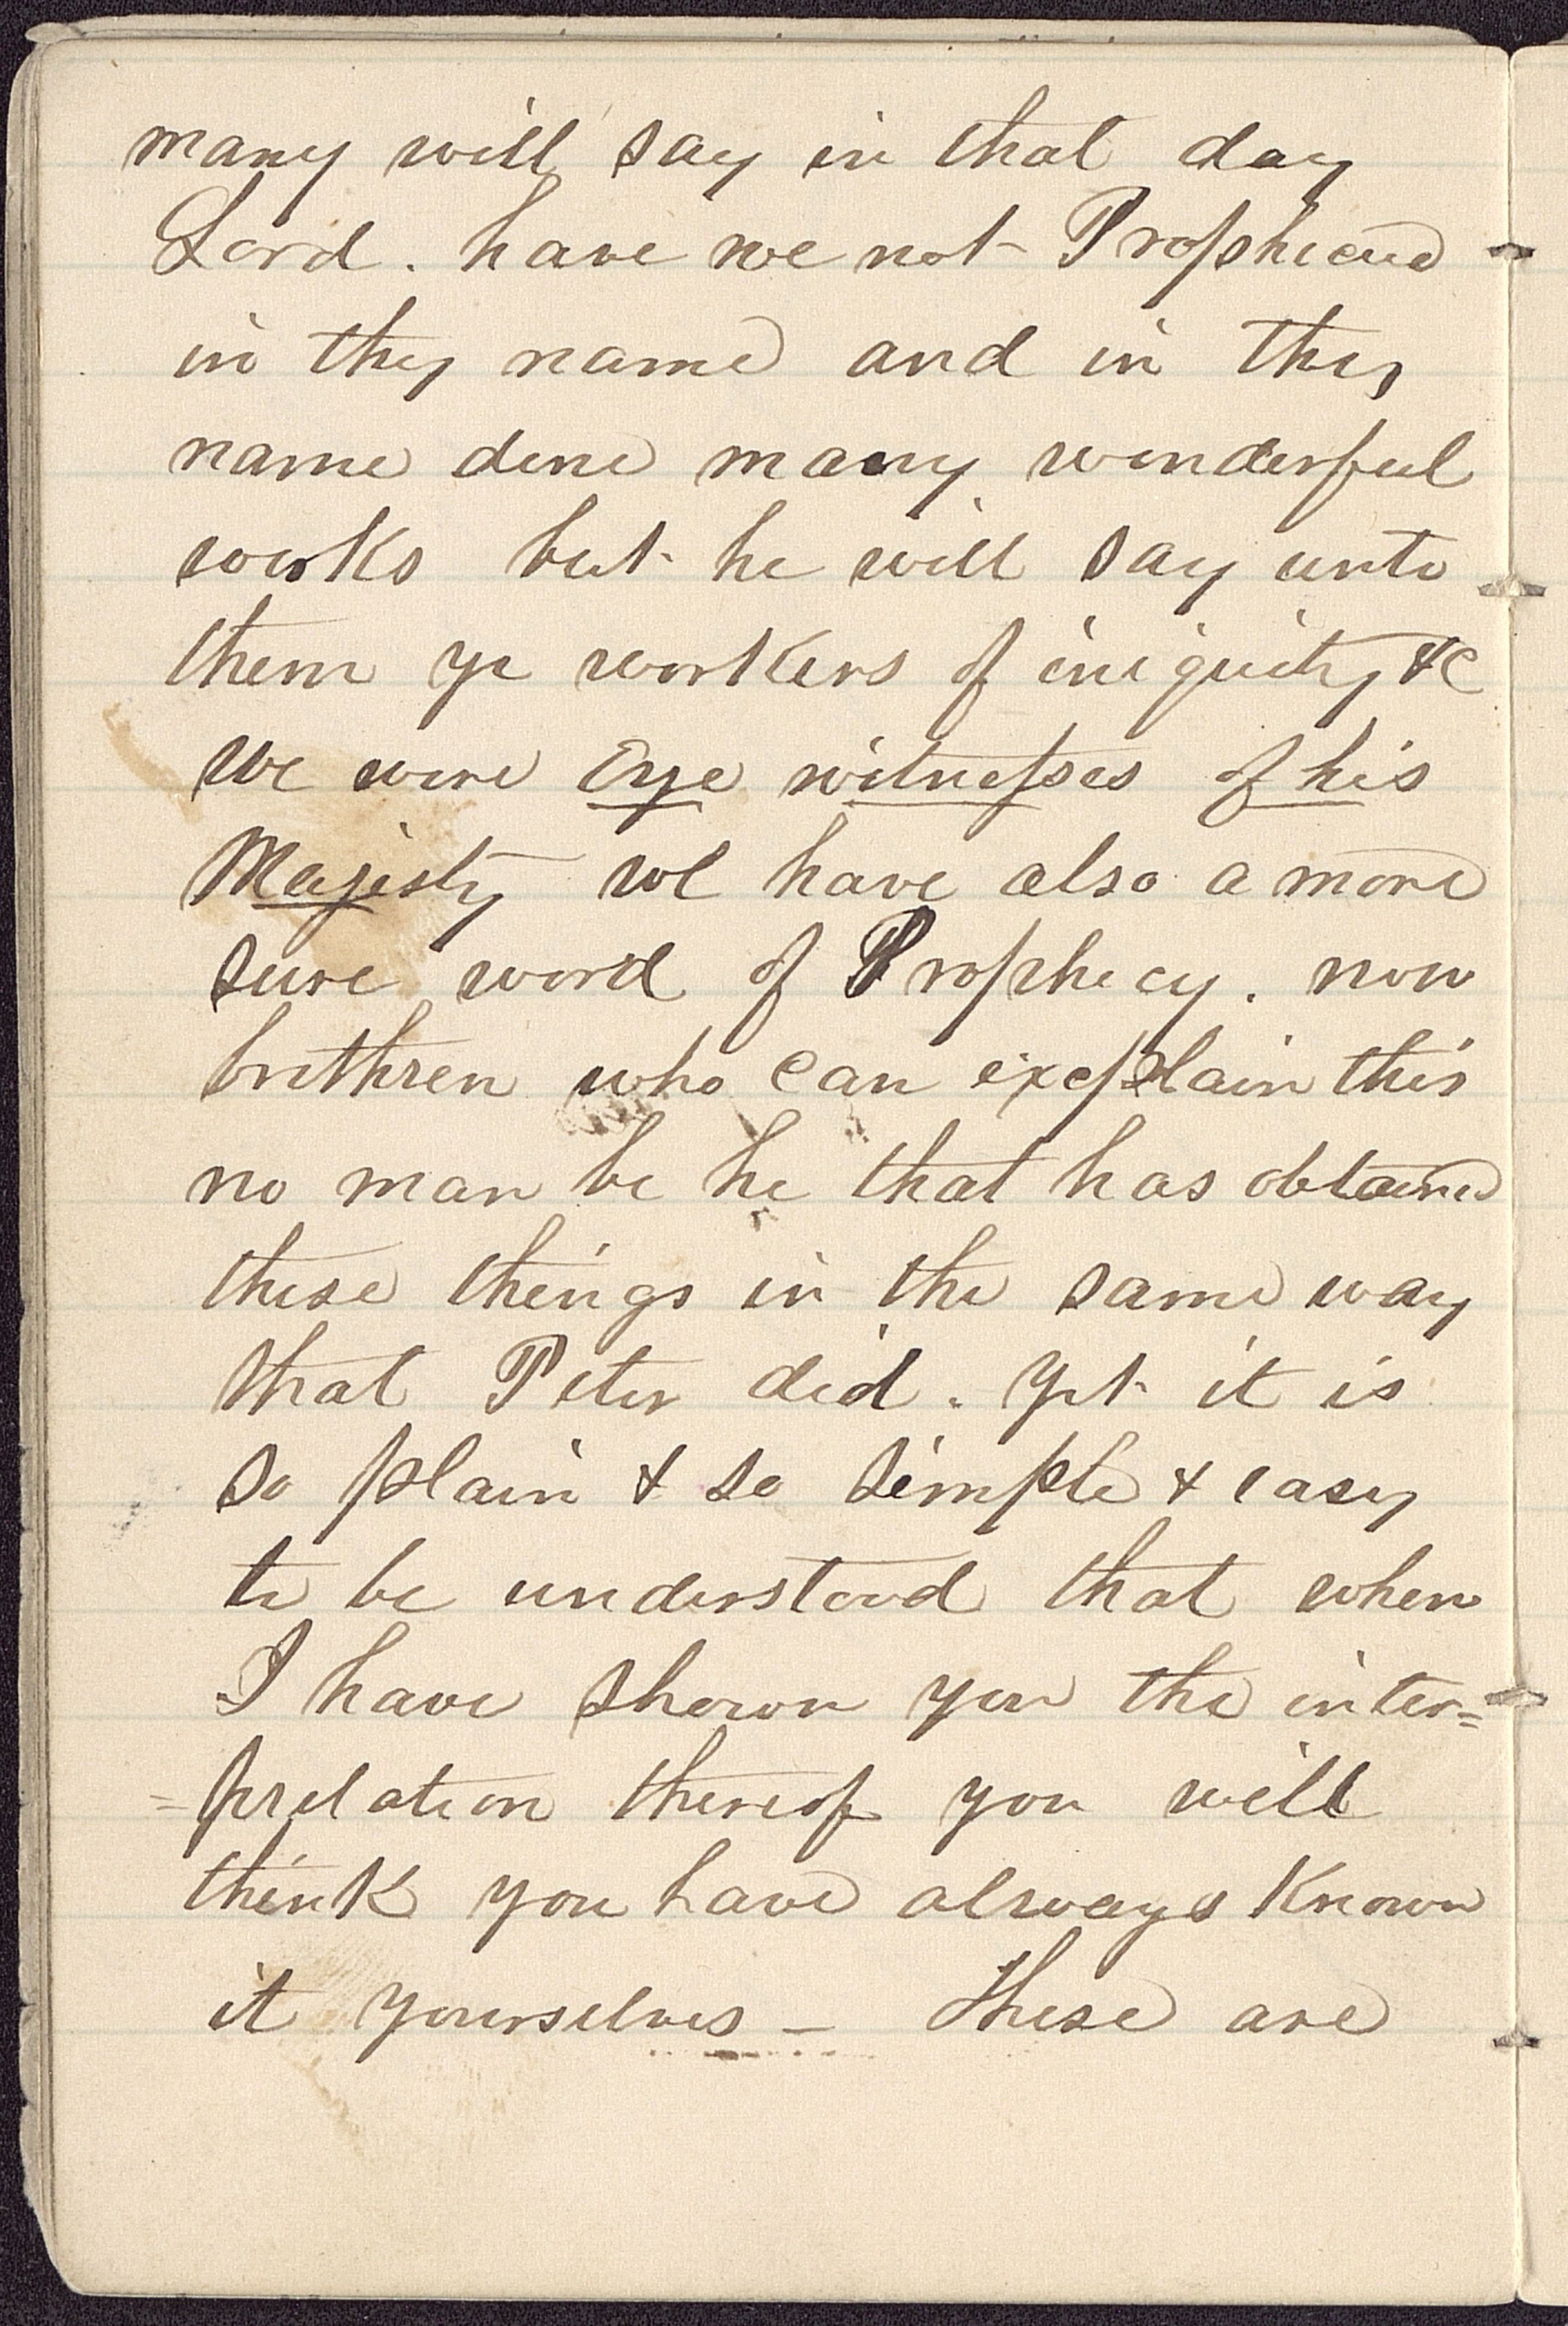 many will say in that day
Lord. have we not Prophicied
in thy name and in thy
name done many wonderful
works but he will say unto
them ye workers of iniquity &c
We were Eye witnesses of his
Majesty we have also a more
sure word of Prophecy. now
brethren who can explain this
no man be he that has obtained
these things in the same way
that Peter did. Yet it is
so plain & so simple & easy
to be understood that when
I have shown you the inter=
=pretation thereof you will
think you have always Known
it yourselves – These are